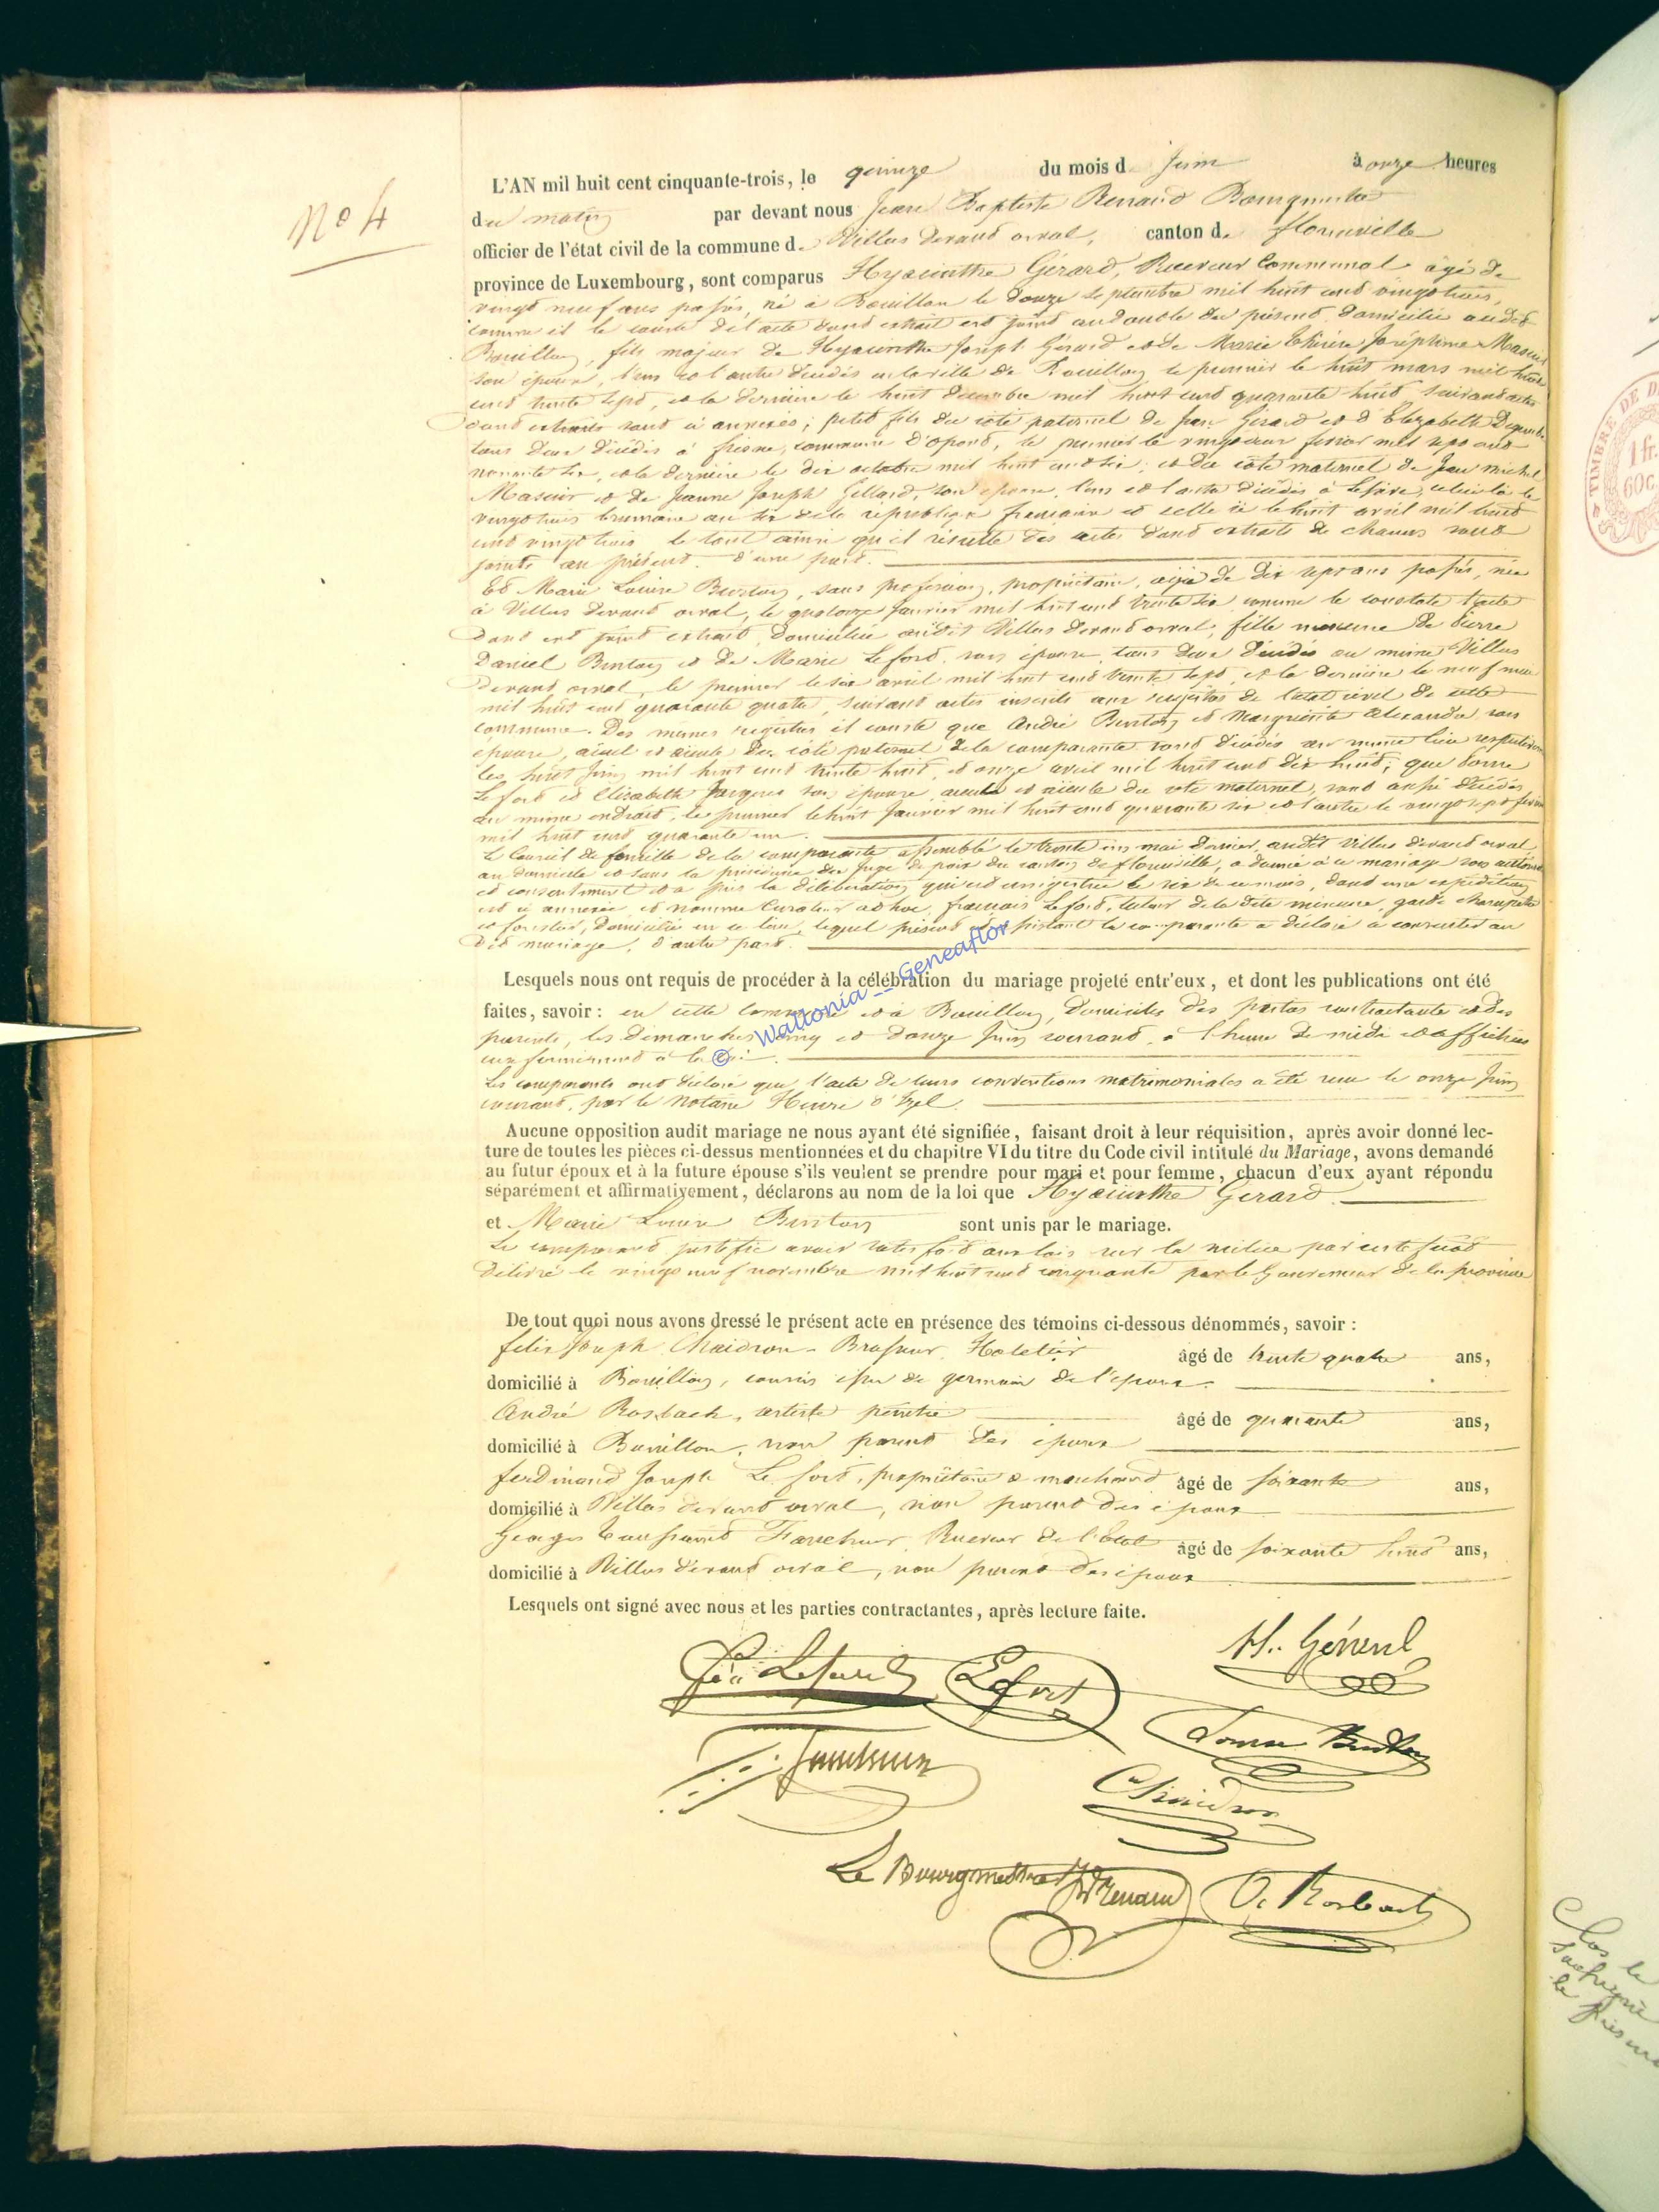 No 4
L'AN mil huit cent cinquante-trois, le quinze du mois d Juin à onze heures
du matin par devant nous Jean Baptiste Renaud Bourgmestre
officier de l'état civil de la commune d. Villers devant orval, canton d. florenville
province de Luxembourg, sont comparus Hyacinthe Gérard, Receveur Communal âgé de
vingt neuf ans passés, né à Bouillon le douze septembre mil huit cent vingt trois,
comme il le conste de l'acte dont extrait est joint au double du présent domicilié audit
Bouillon, fils majeur de Hyacinthe Joseph Gérard et de Marie Thérèse Joséphine Masuir
son épouse, l'un et l'autre décédés en la ville de Bouillon le premier le huit mars mil huit
cent trente sept, et la dernière le huit décembre mil huit cent quarante huit suivant actes
dont extraits sont ci annexés; petit fils du côté paternel de Jean Gérard et d'Elizabeth
tous deux décédés à commune d'opont, le premier le vingt février mil sept cent
nonante six, et la dernière le dix octobre mil huit cent six; et du côté maternel de Jean Michel
Masuir et de Jeanne Joseph Gillard, son épouse, l'un et l'autre décédés à celui là le
vingt trois brumaire an six de la république française et celle ci le huit avril mil huit
cent vingt trois le tout ainsi qu'il résulte des actes dont extraits de chacun sont
joints au présent. d'une part.
Et Marie Louise Burton, sans profession, propriétaire, âgée de dix sept ans passés, née
à Villers devant orval, le quatorze Janvier mil huit cent trente six comme le constate l'acte
dont est joint extrait, domiciliée audit Villers devant orval, fille mineure de Pierre
Daniel Burton et de Marie Lefort, son épouse, tous deux décédés au même Villers
devant orval, le premier le six avril mil huit cent trente sept, et la dernière le neuf mai
mil huit cent quarante quatre, suivant actes inscrits aux registres de l'état civil de cette
commune. Des mêmes registres il conste que André Burton et Marguerite Alexandre son
épouse, aïeul et aïeule du côté paternel de la comparante sont décédés au même lieu
les huit Juin mil huit cent trente huit, et onze avril mil huit cent dix huit; que
Lefort et Elisabeth Jacques son épouse aïeul et aïeule du côté maternel, sont aussi décédés
au même endroit, le premier le huit Janvier mil huit cent quarante six et l'autre le vingt sept
mil huit cent quarante un.
Le Conseil de famille de la comparante assemblé le trente un mai dernier, audit Villers devant orval
au domicile et sous la présidence du Juge de paix du canton de florenville, a donné à ce mariage son
et consentement et a pris la délibération qui est enregistrée le six de ce mois, dont une expédition
est ci annexée et nommé Curateur ad hoc, françois Lefort, tuteur de la dite mineure, garde champêtre
et forestier, domicilié en ce lieu, lequel présent et assistant la comparante a déclaré consentir au
dit mariage, d'autre part.
Lesquels nous ont requis de procéder à la célébration du mariage projeté entr'eux, et dont les publications ont été
faites, savoir : en cette commune et à Bouillon, domiciles des parties contractantes et des
parents, les dimanches cinq et douze Juin courant, à l'heure de midi et affichées
conformément à la loi.
Les comparants ont déclaré que l'acte de leurs conventions matrimoniales a été reçu le onze Juin
courant, par le Notaire d'Izel.
Aucune opposition audit mariage ne nous ayant été signifiée, faisant droit à leur réquisition, après avoir donné lec-
ture de toutes les pièces ci-dessus mentionnées et du chapitre VI du titre du Code civil intitulé du Mariage, avons demandé
au futur époux et à la future épouse s'ils veulent se prendre pour mari et pour femme, chacun d'eux ayant répondu
séparément et affirmativement, déclarons au nom de la loi que Hyacinthe Gérard
et Marie Louise Burton sont unis par le mariage.
Le comparant justifie avoir satisfait aux lois sur la milice par certificat
délivré le vingt neuf novembre mil huit cent cinquante par le Gouverneur de la province
De tout quoi nous avons dressé le présent acte en présence des témoins ci-dessous dénommés, savoir :
felix Joseph Chaidron Brasseur Hotelier âgé de trente quatre ans,
domicilié à Bouillon, cousin issu de germain de l'époux.
André Rosbach, artiste peintre âgé de quarante ans,
domicilié à Bouillon, non parent des époux
ferdinand Joseph Lefort, propriétaire & marchand âgé de soixante ans,
domicilié à Villers devant orval, non parent des époux
Georges Toussaint Receveur de l'Etat âgé de soixante huit ans,
domicilié à Villers devant orval, non parent des époux
Lesquels ont signé avec nous et les parties contractantes, après lecture faite.
H. Gérard
Lefort
Lefort
Louise Burton
Chaidron
Le Bourgmestre Renaud
A. Rosbach
© Wallonia -- Geneaflor
TIMBRE DE D
1 fr.
60c.
Clos le
le